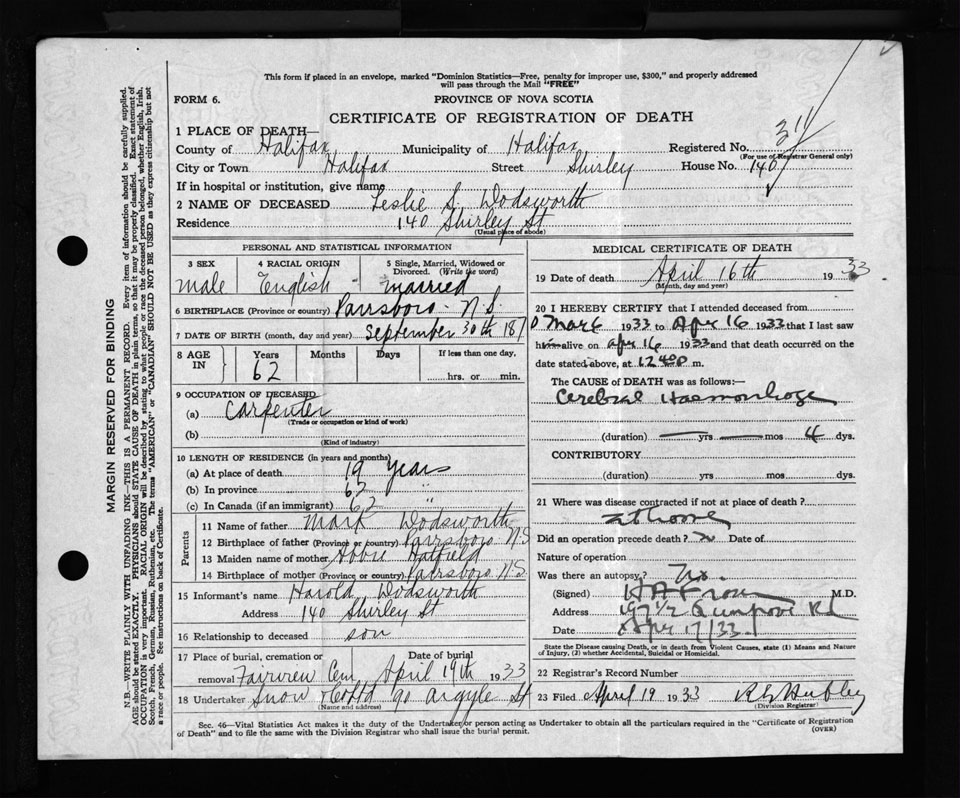 This form if placed in an envelope, marked "Dominion Statistics—Free, penalty for improper use, $300," and properly addressed
will pass through the Mail "FREE"
FORM 6.
PROVINCE OF NOVA SCOTIA
CERTIFICATE OF REGISTRATION OF DEATH
1 PLACE OF DEATH—
County of Halifax Municipality of Halifax Registered No.
(For use of Registrar General only)
City or Town Halifax Street Shirley House No. 140
If in hospital or institution, give name
2 NAME OF DECEASED Leslie S. Wodsworth
Residence 140 Shirley St
(Usual place of abode)
PERSONAL AND STATISTICAL INFORMATION
3 SEX male
4 RACIAL ORIGIN English
5 Single, Married, Widowed or Divorced. (Write the word) married
6 BIRTHPLACE (Province or country) Parrsboro N.S.
7 DATE OF BIRTH (month, day and year) September 30th 187
8 AGE IN Years 62 Months Days If less than one day, hrs. or min.
9 OCCUPATION OF DECEASED
(a) Carpenter
(Trade or occupation or kind of work)
(b)
(Kind of industry)
10 LENGTH OF RESIDENCE (in years and months)
(a) At place of death 19 years
(b) In province 62 "
(c) In Canada (if an immigrant) 62 "
Parents
11 Name of father Mark Wodsworth
12 Birthplace of father (Province or country) Parrsboro N.S
13 Maiden name of mother Abbie Hatfield
14 Birthplace of mother (Province or country) Parrsboro N.S.
15 Informant's name Harold Wodsworth
Address 140 Shirley St
16 Relationship to deceased son
17 Place of burial, cremation or removal Fairview Cem Date of burial April 19th 1933
18 Undertaker Snow & Co Ltd 90 Argyle St
(Name and address)
MEDICAL CERTIFICATE OF DEATH
19 Date of death April 16th 1933
(Month, day and year)
20 I HEREBY CERTIFY that I attended deceased from
Mar 6 1933 to Apr 16 1933 that I last saw
him alive on apr 16 1933 and that death occurred on the
date stated above, at m.
The CAUSE of DEATH was as follows:—
Cerebral Haemorrhage
(duration) — yrs — mos 4 dys.
CONTRIBUTORY
(duration) yrs. mos. dys.
21 Where was disease contracted if not at place of death?
at home
Did an operation precede death? Date of
Nature of operation
Was there an autopsy? No.
(Signed) M.D.
Address 197 1/2 Rd
Date Apr 17/33
State the Disease causing Death, or in death from Violent Causes, state (1) Means and Nature of Injury, (2) whether Accidental, Suicidal or Homicidal.
22 Registrar's Record Number
23 Filed April 19 1933
(Division Registrar)
Sec. 46—Vital Statistics Act makes it the duty of the Undertaker or person acting as Undertaker to obtain all the particulars required in the "Certificate of Registration
of Death" and to file the same with the Division Registrar who shall issue the burial permit.
(OVER)
MARGIN RESERVED FOR BINDING
N.B.—WRITE PLAINLY WITH UNFADING INK—THIS IS A PERMANENT RECORD. Every item of information should be carefully supplied.
AGE should be stated EXACTLY. PHYSICIANS should STATE CAUSE OF DEATH in plain terms, so that it may be properly classified. Exact statement of
OCCUPATION is very important. RACIAL ORIGIN will be described by stating to what people or race the deceased person belonged, whether English, Irish,
Scotch, French, German, Russian, Ruthenian, etc. The terms "AMERICAN" or "CANADIAN" SHOULD NOT BE USED as they express citizenship but not
a race or people. See instructions on back of Certificate.